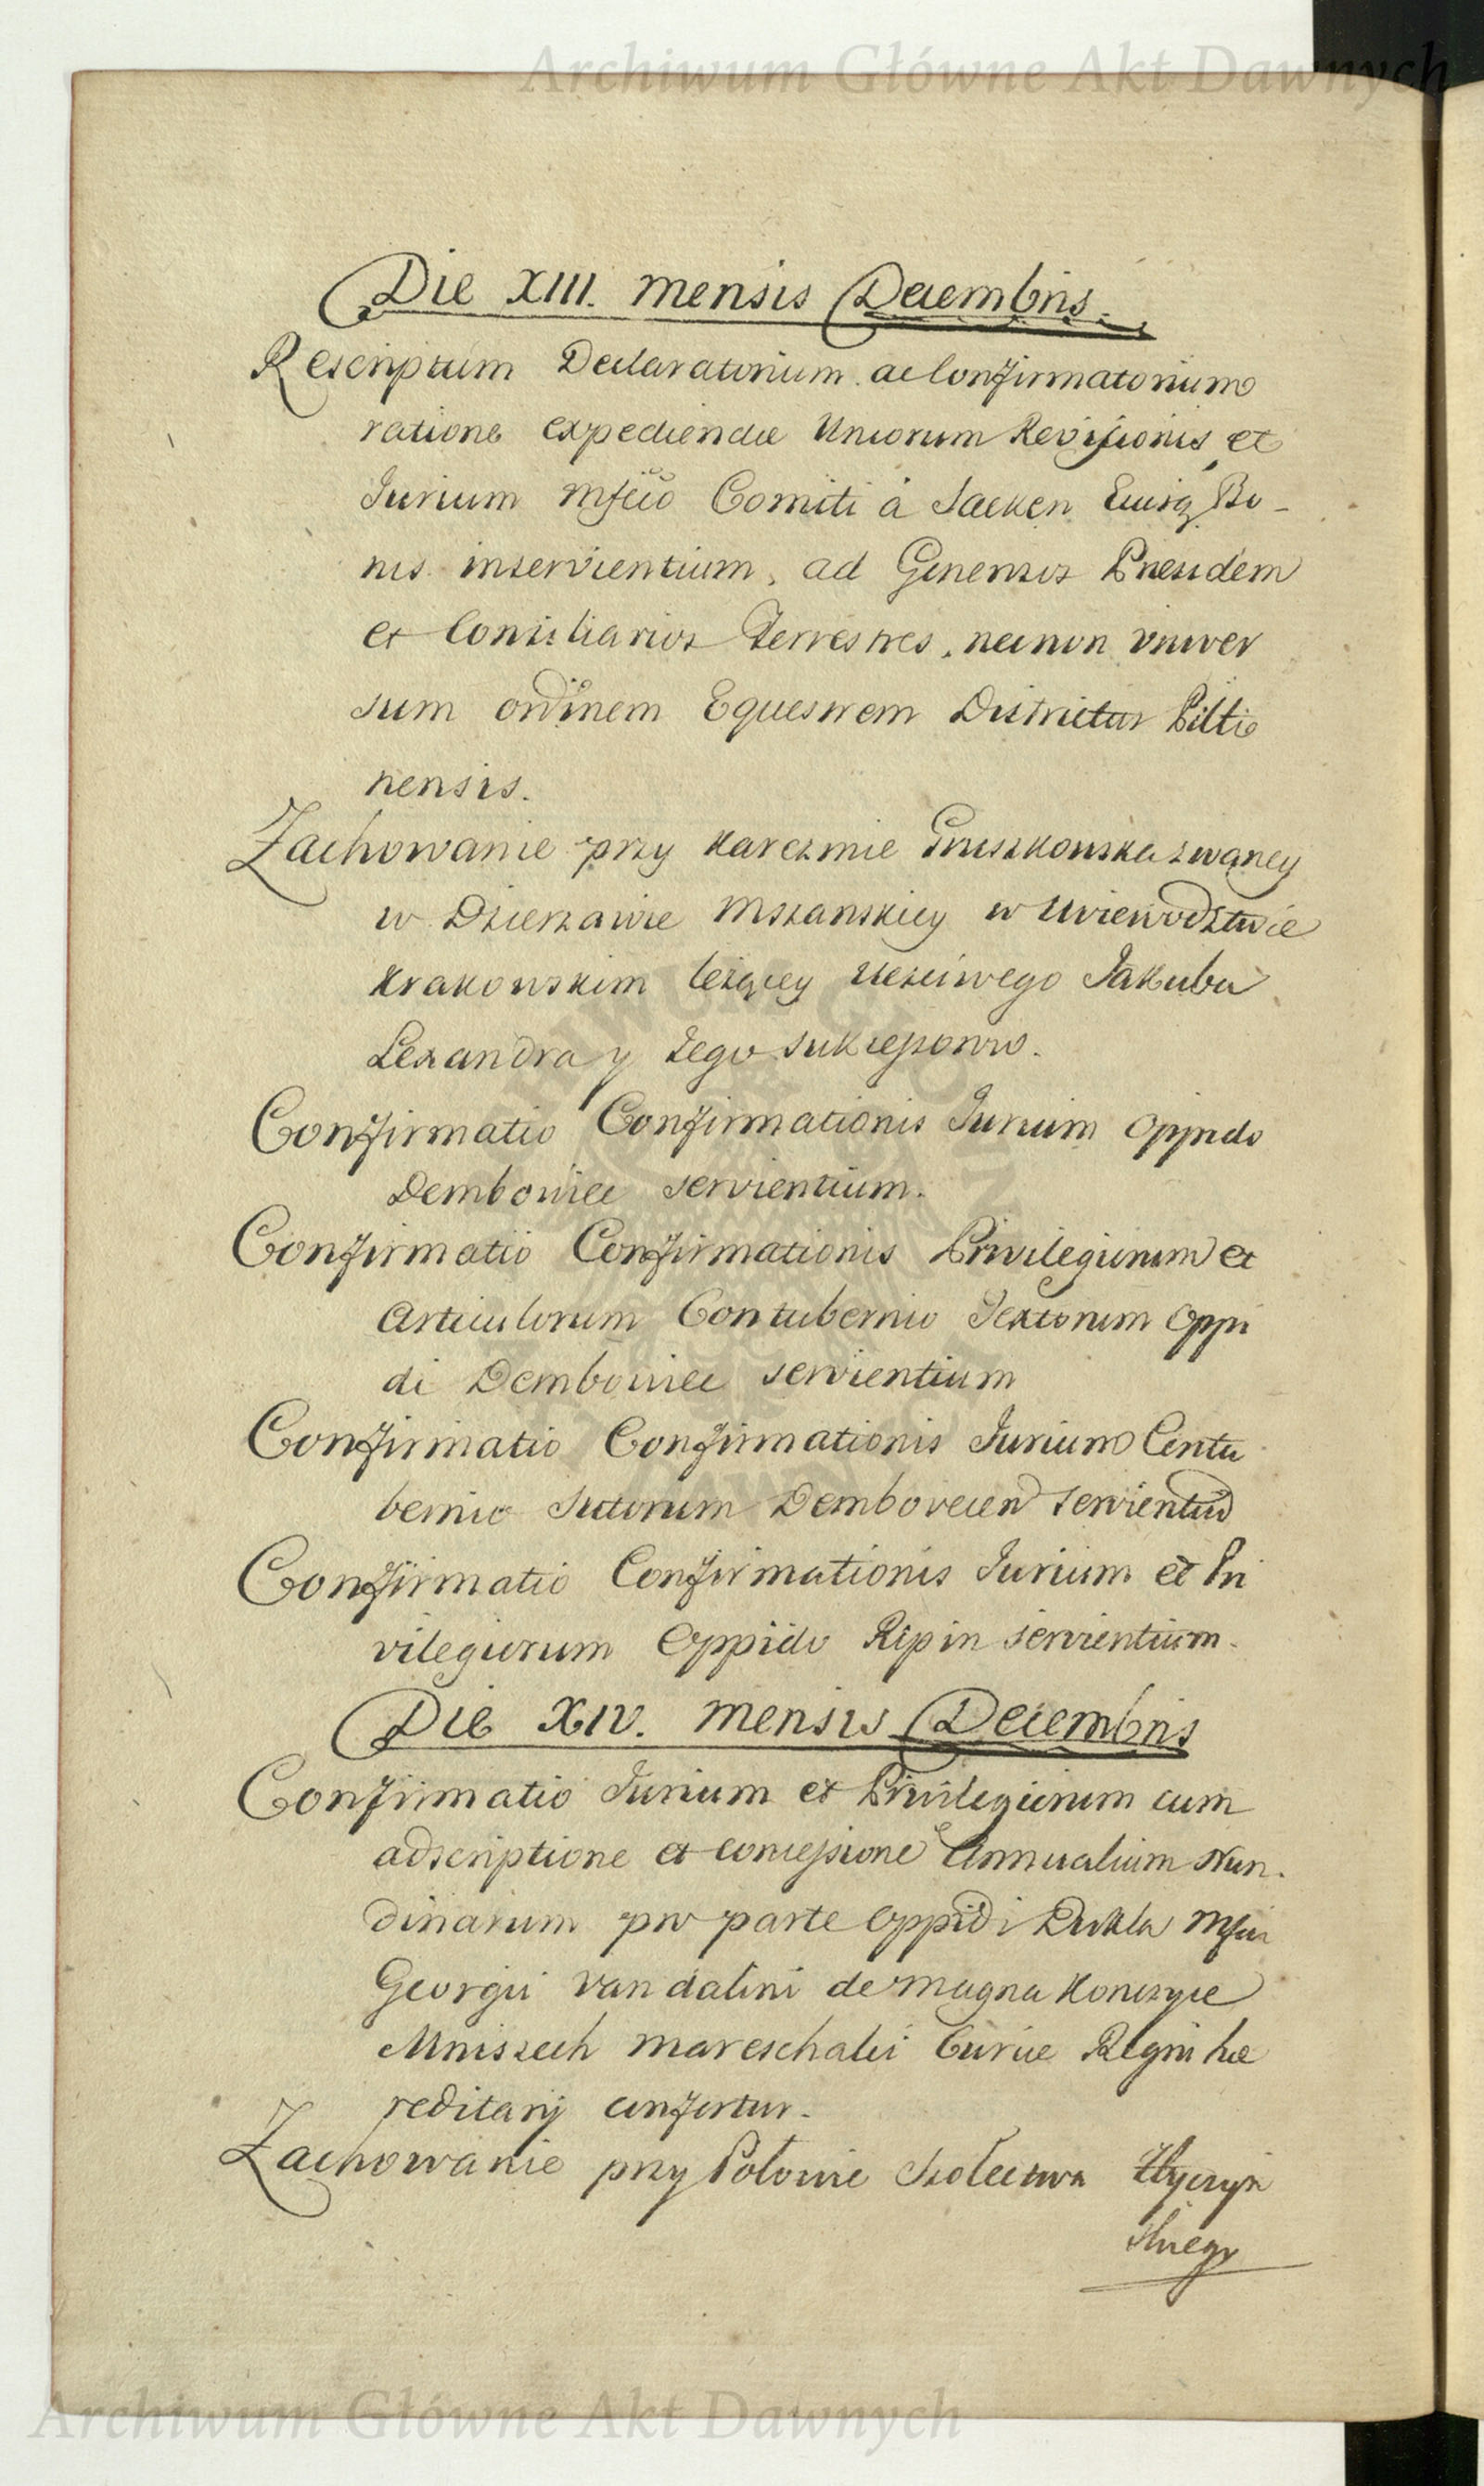 Archiwum Główne Akt Dawnych
Die XIII. mensis Decembris.
Rescriptum Declaratorium ac Confirmatorium
ratione expediendae Unionum Revisionis et
Jurium Mfco Comiti à Sacken Eiusq Bo-
nis inservientium, ad Generosos Praesidem
et Consiliarios Terrestres, necnon univer
sum ordinem Equestrem Districtus Pilti
nensis.
Zachowanie przy karczmie Gruszkowska zwaney
w Dzierzawie Mszanskiey w Woiewodztwie
Krakowskim leżącey uczciwego Jakuba
Lexandra y Jego Sukcessorow.
Confirmatio Confirmationis Jurium Oppido
Dembowiec servientium.
Confirmatio Confirmationis Privilegiorum et
Articulorum Contubernio Textorum Oppi
di Dembowiec servientium
Confirmatio Confirmationis Jurium Contu
bernio Sutorum Dembovecen servientiu
Confirmatio Confirmationis Jurium et Pri
vilegiorum Oppido Ripin servientium.
Die XIV. mensis Decembris
Confirmatio Jurium et Privilegiorum cum
adscriptione et concessione Annualium Nun.
dinarum pro parte Oppidi Dukla Mfci
Georgii Vandalini de Magna Konczyce
Mniszech Mareschalci Curiae Regni hae
reditarij confertur.
Zachowanie przy Połowie Szołectwa
Archiwum Główne Akt Dawnych